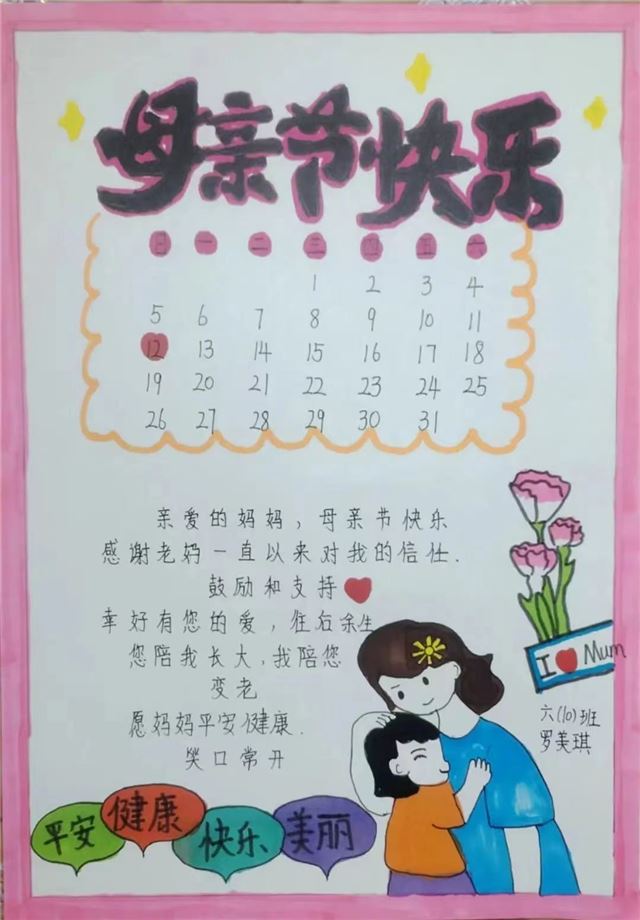 母亲节快乐
日 一 二 三 四 五 六
1 2 3 4
5 6 7 8 9 10 11
12 13 14 15 16 17 18
19 20 21 22 23 24 25
26 27 28 29 30 31
亲爱的妈妈，母亲节快乐
感谢老妈一直以来对我的信任.
鼓励和支持
幸好有您的爱，往后余生
您陪我长大，我陪您
变老
愿妈妈平安健康.
笑口常开
I ❤ Mum
六(10)班
罗美琪
平安 健康 快乐 美丽